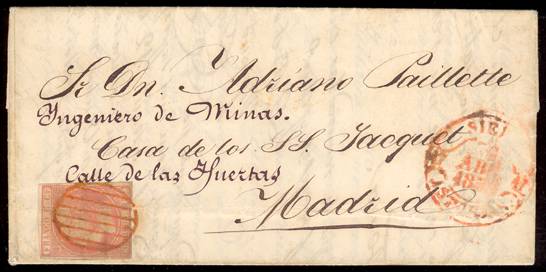 Sr Dn. Adriano Paillette
Ingeniero de Minas.
Casa de los SS. Jacquet
Calle de las Huertas
Madrid